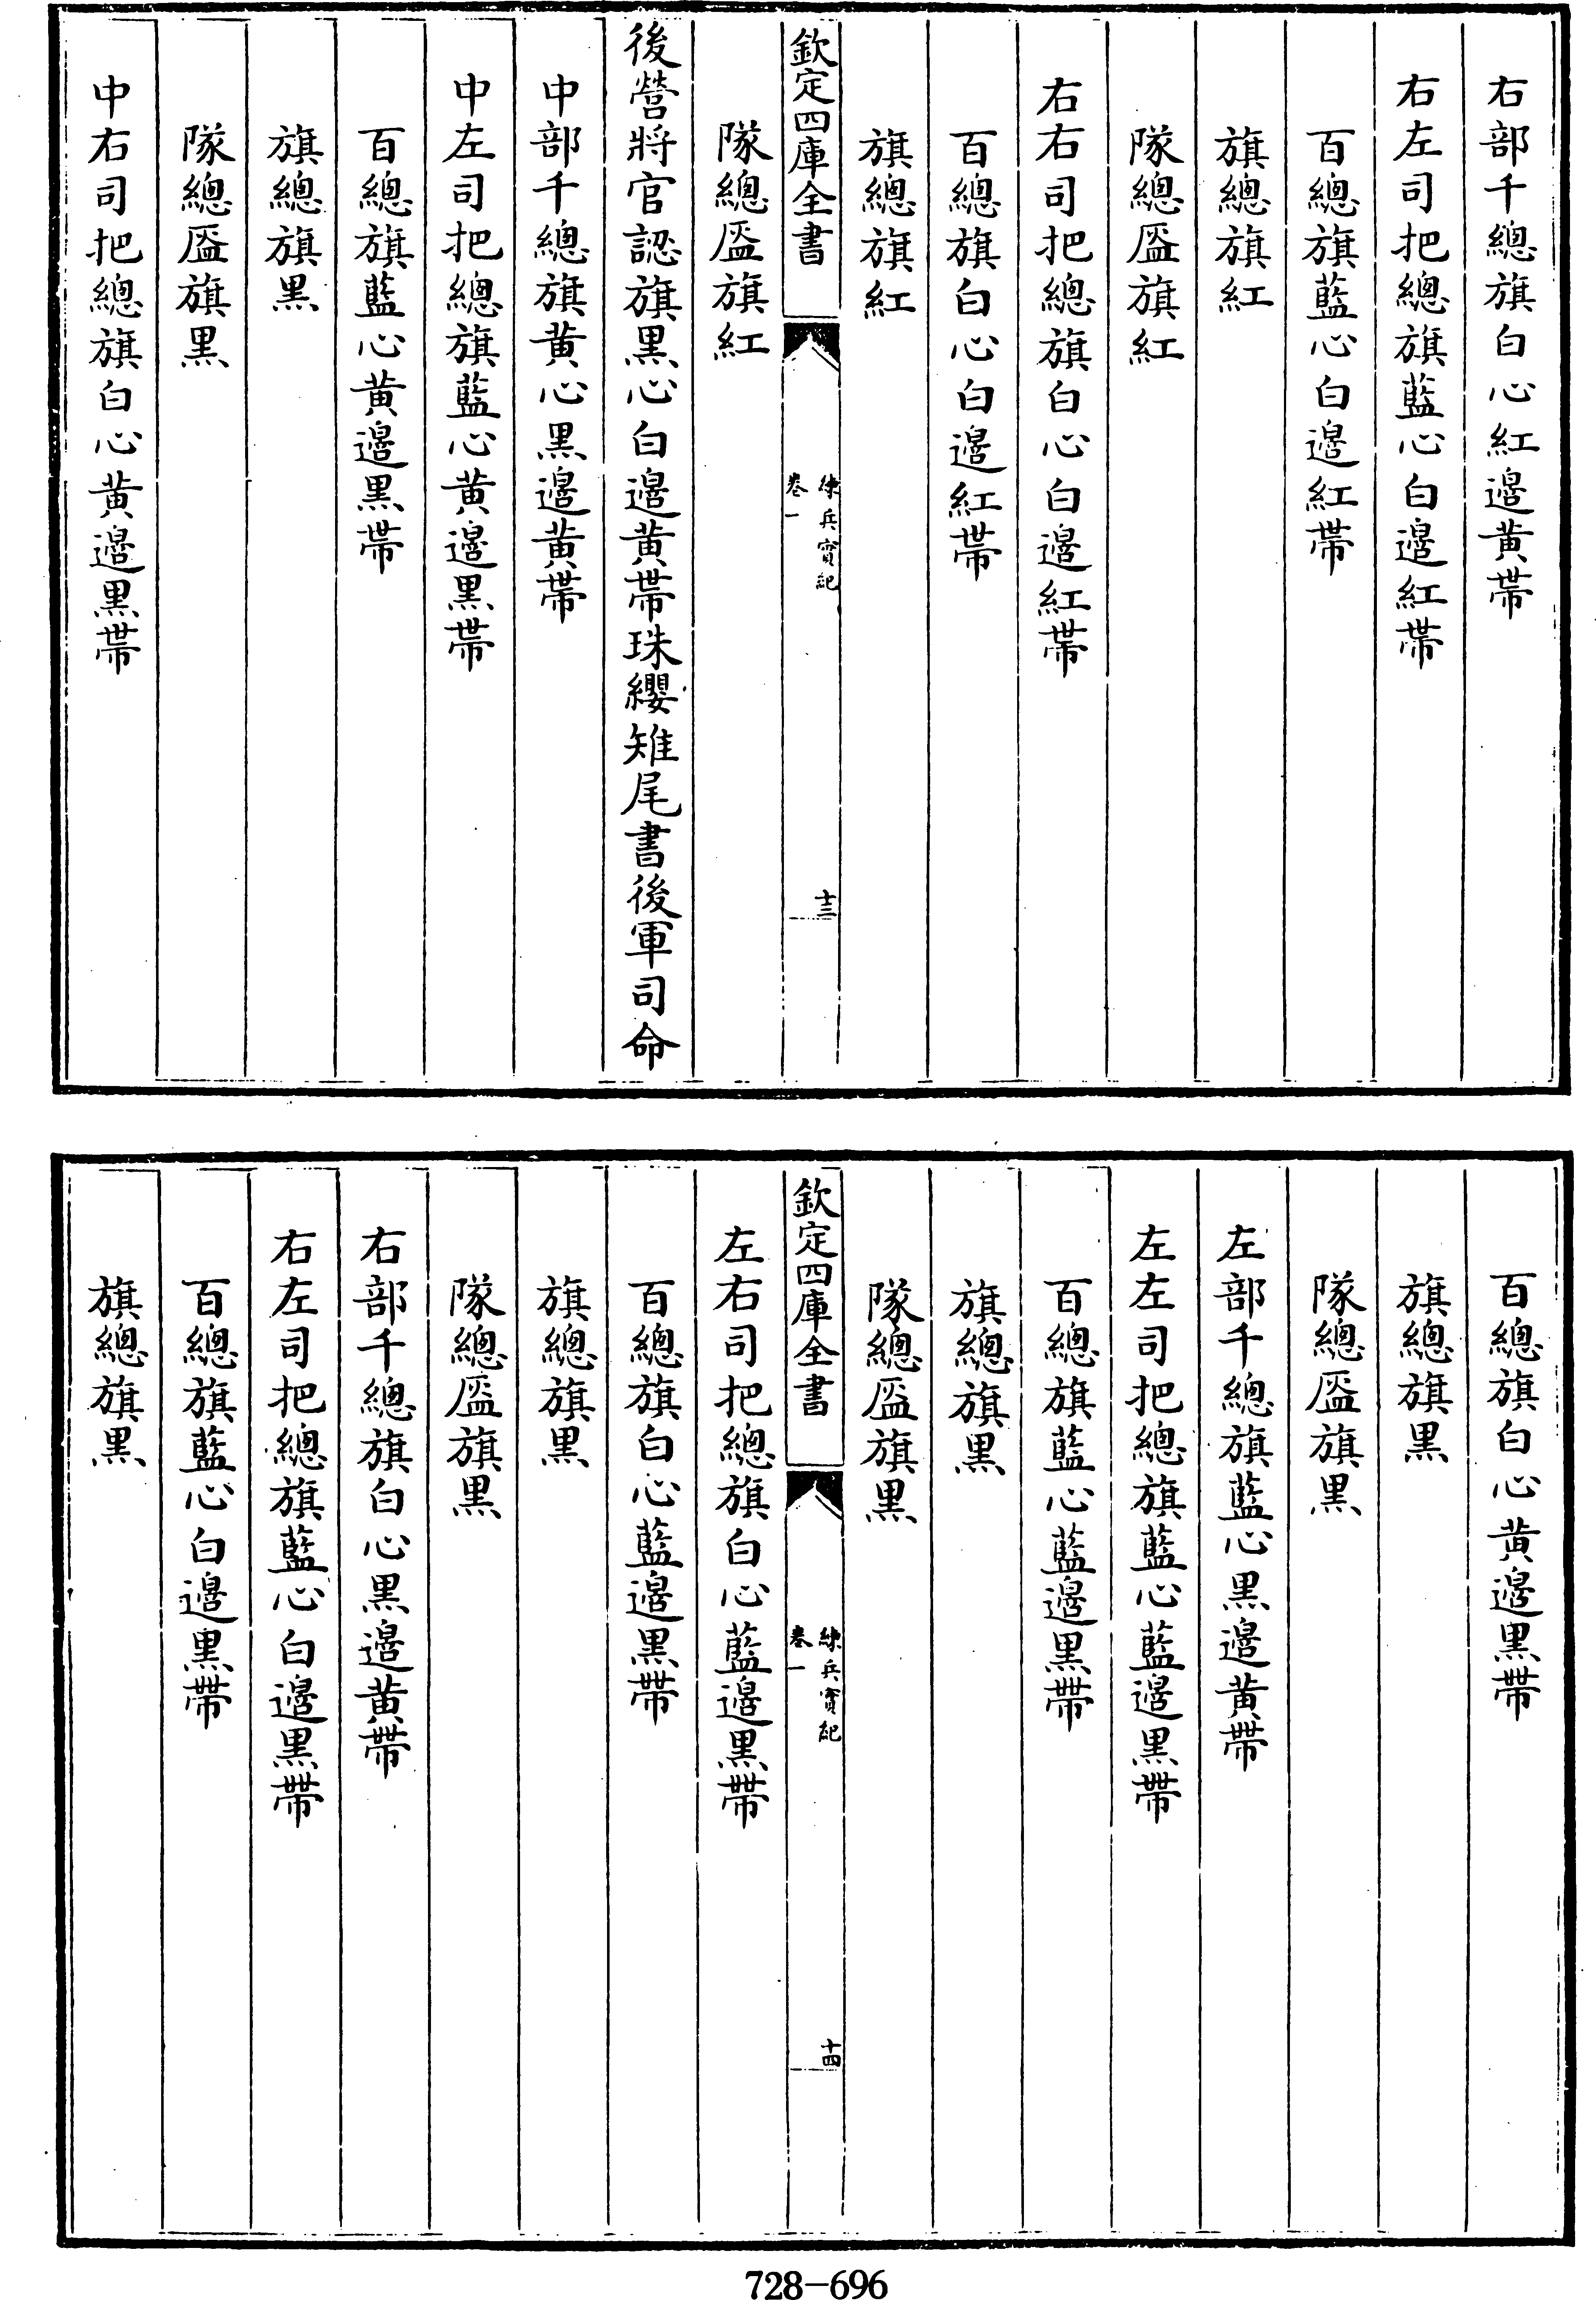 右部千總旗白心紅邊黃帶
右左司把總旗藍心白邊紅帶
百總旗藍心白邊紅帶
旗總旗紅
隊總盔旗紅
右右司把總旗白心白邊紅帶
百總旗白心白邊紅帶
旗總旗紅
欽定四庫全書
練兵實紀
卷一
十三
隊總盔旗紅
後營將官認旗黑心白邊黃帶珠纓雉尾書後軍司命
中部千總旗黃心黑邊黃帶
中左司把總旗藍心黃邊黑帶
百總旗藍心黃邊黑帶
旗總旗黑
隊總盔旗黑
中右司把總旗白心黃邊黑帶
百總旗白心黃邊黑帶
旗總旗黑
隊總盔旗黑
左部千總旗藍心黑邊黃帶
左左司把總旗藍心藍邊黑帶
百總旗藍心藍邊黑帶
旗總旗黑
隊總盔旗黑
欽定四庫全書
練兵實紀
卷一
十四
左右司把總旗白心藍邊黑帶
百總旗白心藍邊黑帶
旗總旗黑
隊總盔旗黑
右部千總旗白心黑邊黃帶
右左司把總旗藍心白邊黑帶
百總旗藍心白邊黑帶
旗總旗黑
728-696